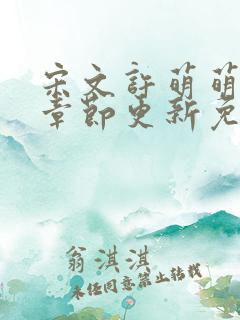 宋文许萌萌
章节更新免
翁淇淇
未经同意禁止转载